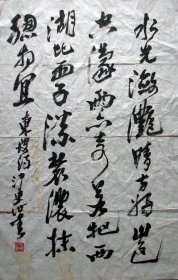 水光瀲灧晴方好山色
空濛雨亦奇若把西
湖比西子淡裝濃抹
總相宜 東坡詩